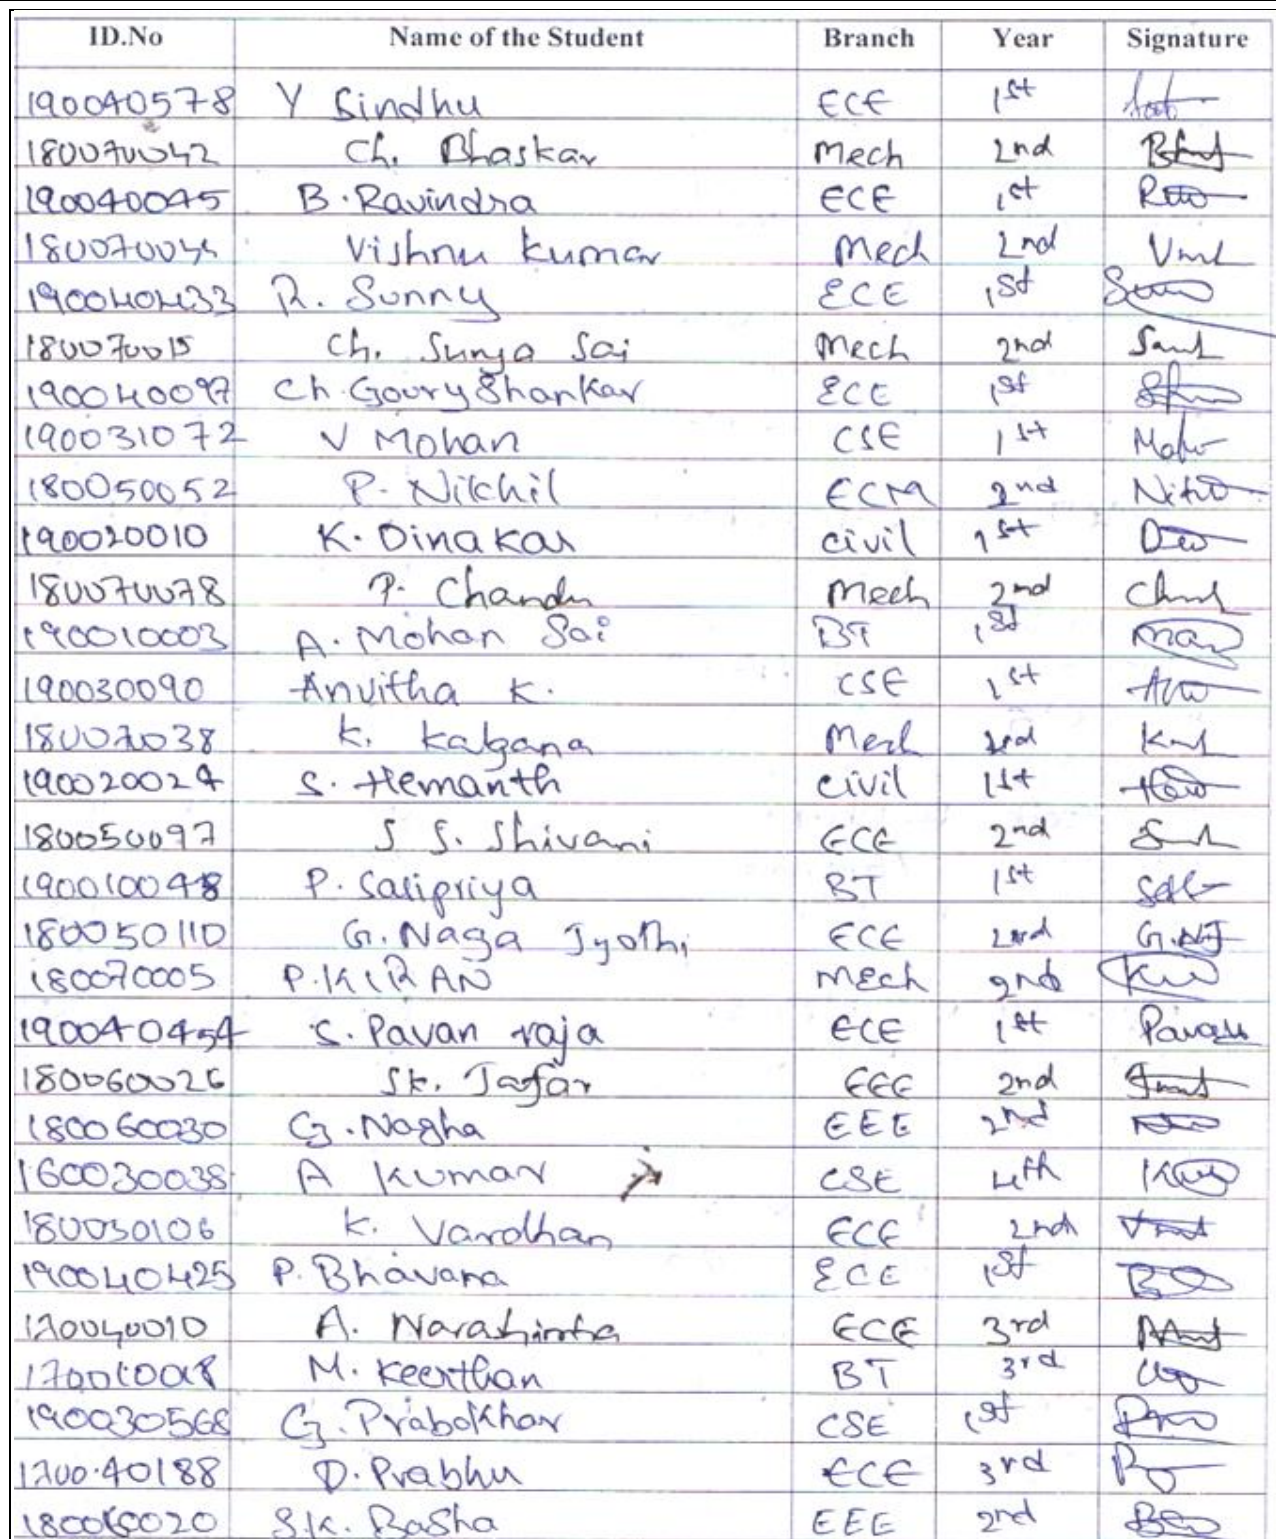 ID.No Name of the Student Branch Year Signature
190040578 Y Sindhu ECE 1st
180070042 Ch. Bhaskar Mech 2nd
190040045 B. Ravindra ECE 1st
180070044 Vishnu Kumar Mech 2nd
190040433 R. Sunny ECE 1st
180070015 Ch. Surya Sai Mech 2nd
190040097 Ch. Goury Shankar ECE 1st
190031072 V Mohan CSE 1st
180050052 P. Nikhil ECM 2nd
190020010 K. Dinakar civil 1st
180070078 P. Chandu Mech 2nd
190010003 A. Mohan Sai BT 1st
190030090 Anvitha K. CSE 1st
180070038 K. Kalpana Mech 2nd
190020024 S. Hemanth civil 1st
180050097 S S. Shivani ECE 2nd
190010048 P. Saripriya BT 1st
180050110 G. Naga Jyothi ECE 2nd G.NJ
180070005 P. KIRAN Mech 2nd
190040454 S. Pavan raja ECE 1st
180060026 Sk. Jafar EEE 2nd
180060030 G. Nagha EEE 2nd
160030038 A Kumar CSE 4th
180050106 K. Vardhan ECE 2nd
190040425 P. Bhavana ECE 1st
170040010 A. Narashimha ECE 3rd
M. Keerthan BT 3rd
190030568 G. Prabakhar CSE 1st
170040188 D. Prabhu ECE 3rd
180060020 S.K. Basha EEE 2nd